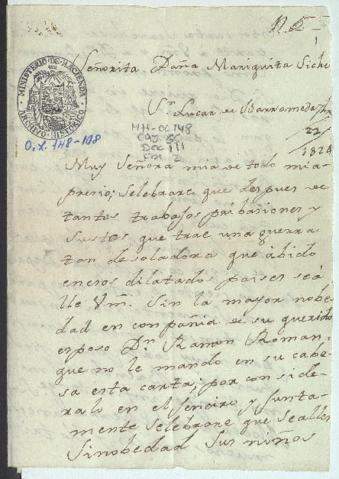 N. 5
Señorita Doña Mariquita Siche
Sn. Lucar de Barrameda
22/
1824
MINISTERIO DE HACIENDA
ARCHIVO HISTORICO
O.L. 748-108
MH-OL 148
Doc 111
Muy Señora mia de todo mi a
presio; Selebrare que despues de
tantos trabajos pribasiones y
Sustos que trae una guerra
tan desoladora que abido
en esos dilatados paises se a
lle Vm. Sin la mayor nobe
dad en conpañia de su querido
esposo Dn. Ramon Roman,
que no le mando en su cabe
sa esta carta; por con side
ralo en el fenciro y junta
mente selebrare que se allen
Sinobedad Sus niños